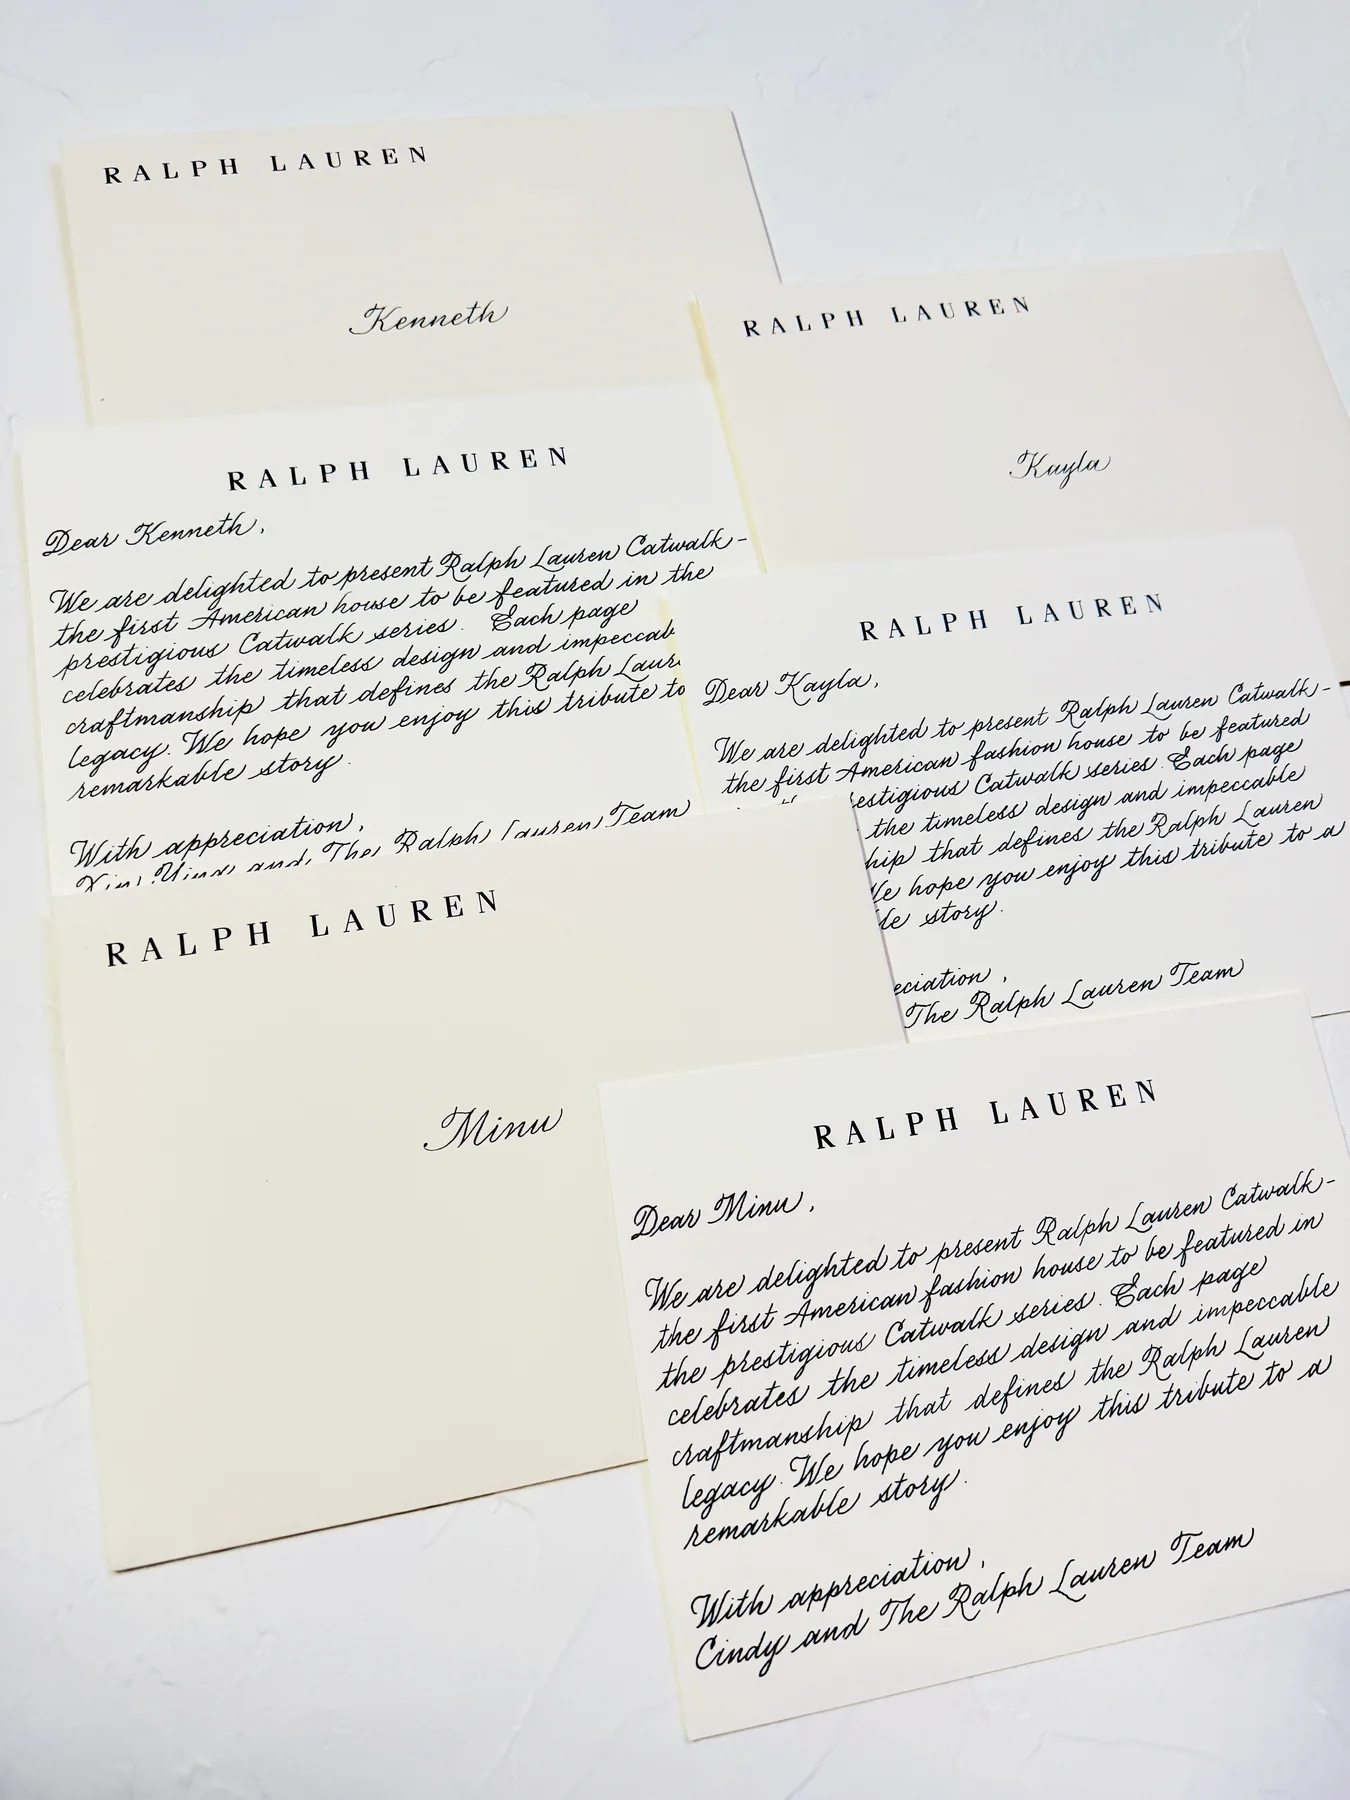 RALPH LAUREN
Kenneth
RALPH LAUREN
Kayla
RALPH LAUREN
Dear Kenneth,
We are delighted to present Ralph Lauren Catwalk-
the first American house to be featured in the
prestigious Catwalk series. Each page
celebrates the timeless design and impeccab
craftmanship that defines the Ralph Laur
legacy. We hope you enjoy this tribute to
remarkable story.
With appreciation,
and The Ralph Lauren Team
RALPH LAUREN
Dear Kayla,
We are delighted to present Ralph Lauren Catwalk-
the first American fashion house to be featured
estigious Catwalk series. Each page
the timeless design and impeccable
hip that defines the Ralph Lauren
We hope you enjoy this tribute to a
le story.
eciation,
The Ralph Lauren Team
RALPH LAUREN
Minu
RALPH LAUREN
Dear Minu,
We are delighted to present Ralph Lauren Catwalk-
the first American fashion house to be featured in
the prestigious Catwalk series. Each page
celebrates the timeless design and impeccable
craftmanship that defines the Ralph Lauren
legacy. We hope you enjoy this tribute to a
remarkable story.
With appreciation,
Cindy and The Ralph Lauren Team